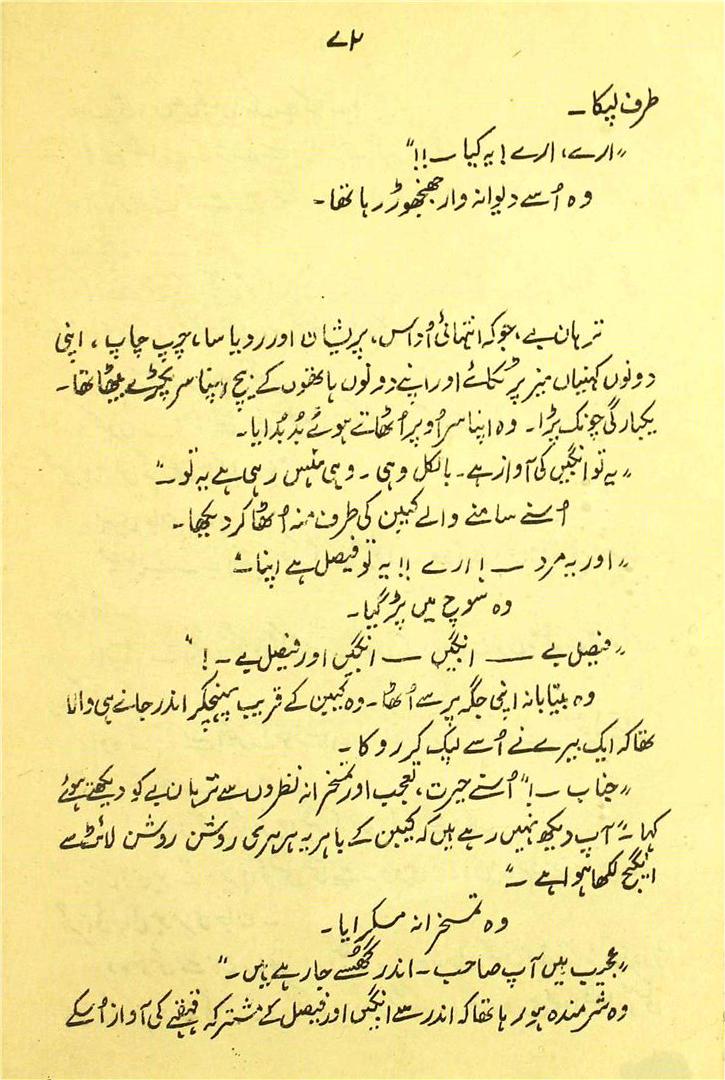 ۷۲
طرف لپکا ۔
"ارے، ارے! یہ کیا ۔۔!!"
وہ اُسے دیوانہ وار جھنجھوڑ رہا تھا۔
ترہان بے، جو کہ انتہائی اُداس، پریشان اور رویا سا، چپ چاپ، اپنی
دونوں کہنیاں میز پر ٹکائے اور اپنے دونوں ہاتھوں کے بیچ اپنا سر پکڑے بیٹھا تھا۔
یکبارگی چونک پڑا۔ وہ اپنا سر اُوپر اُٹھاتے ہوئے بُدبُدایا۔
"یہ تو انگیں کی آواز ہے۔ بالکل وہی ۔ وہی ہنس رہی ہے یہ تو۔"
اُسنے سامنے والے کیبن کی طرف منہ اُٹھا کر دیکھا۔
"اور یہ مرد ۔۔ ! ارے !! یہ تو فیصل ہے اپنا۔"
وہ سوچ میں پڑ گیا۔
"فیصل بے ۔۔ انگیں ۔۔ انگیں اور فیصل بے ۔ !"
وہ بیتابانہ اپنی جگہ پر سے اُٹھا۔ وہ کیبن کے قریب پہنچکر اندر جانے ہی والا
تھا کہ ایک بیرے نے اُسے لپک کر روکا۔
"جناب ۔!" اُسنے حیرت، تعجب اور تمسخرانہ نظروں سے ترہان بے کو دیکھتے ہوئے
کہا ۔ "آپ دیکھ نہیں رہے ہیں کہ کیبن کے باہر یہ ہر ہری روشن روشن لائٹ سے
انگیج لکھا ہوا ہے ۔"
وہ تمسخرانہ مسکرایا۔
"عجیب ہیں آپ صاحب ۔ اندر گھسے جا رہے ہیں۔"
وہ شرمندہ ہو رہا تھا کہ اندر سے انگیں اور فیصل کے مشترکہ قہقہے کی آواز اُسکے